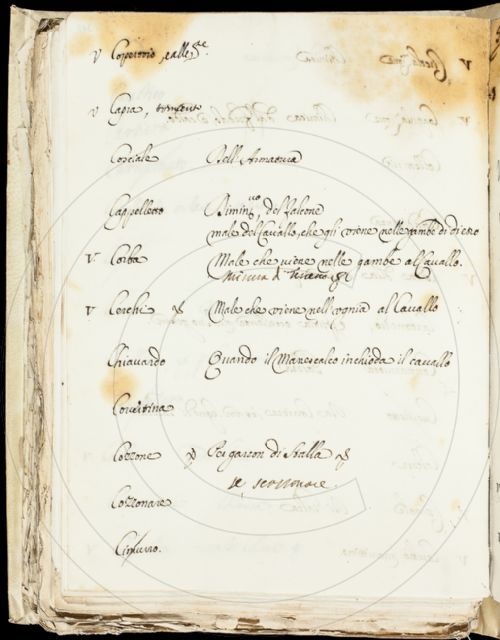 v Coperoni
v Capra, tormento
Cosciale Dell'Armatura
Cappelletto Dimin.vo del falcone
male del Cavallo, che gli viene nelle gambe di dietro
v Corba Male che viene nelle gambe al Cavallo.
misura di
v Cerchi Male che viene nell'ognia al Cavallo
Chiavardo Quando il Manescalco inchioda il cavallo
Covertina
Cozzone Per garzon di stalla
se scozzonare.
Cozzonare